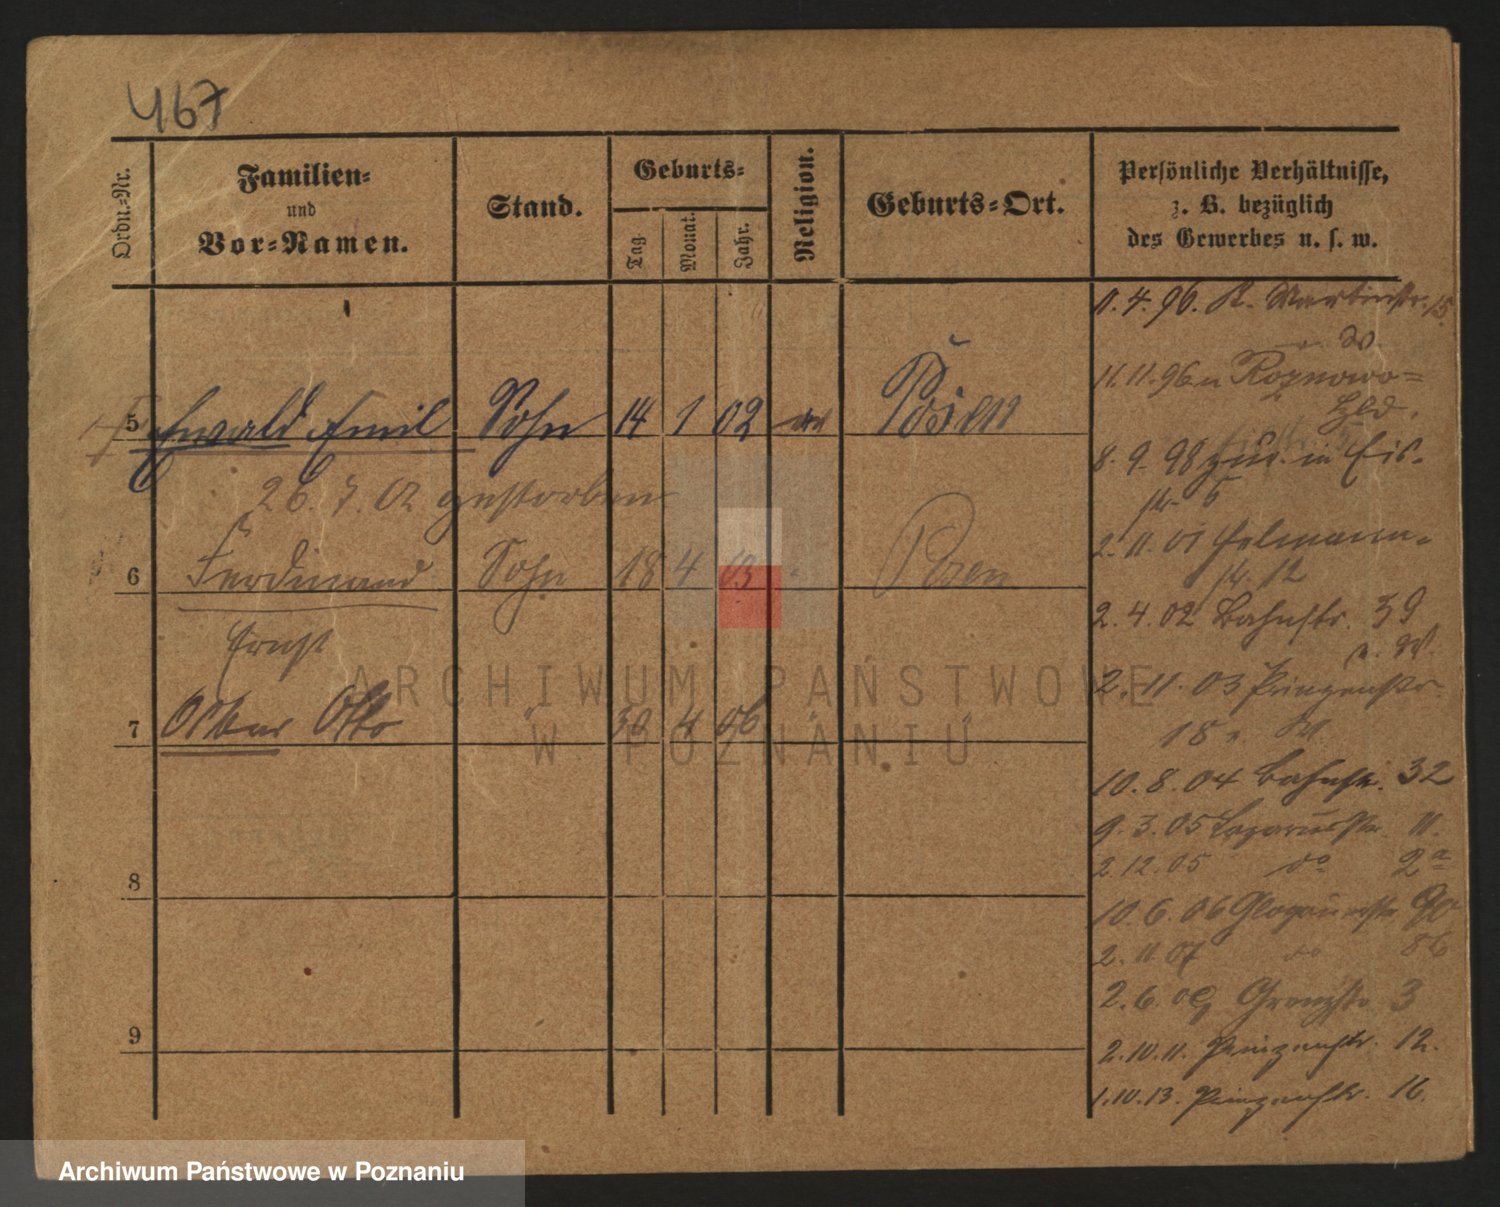 467
Ordn.-Nr.
Familien-
und
Vor-Namen.
Stand.
Geburts-
Tag
Monat.
Jahr.
Religion.
Geburts-Ort.
Persönliche Verhältnisse,
z. B. bezüglich
des Gewerbes u. s. w.
5 Ewald Emil Sohn 14 1 02 Posen
26. 7. 02 gestorben
6 Ferdinand Sohn 18 4 03 Posen
Ernst
7 Otto " 30 4 06 "
8
9
11. 4. 96. St. Martinstr. 15.
11. 11. 96
8. 9. 98 in Eis-
str. 5
2. 11. 01
str. 12
2. 4. 02 Bahnstr. 39
2. 11. 03 Prinzenstr.
18
10. 8. 04 Bahnstr. 32
9. 3. 05 Lazarusstr. 11.
2. 12. 05 do 2a
10. 6. 06 Glogauerstr. 90
2. 11. 07 do 86
2. 6. 09 Grenzstr. 3
2. 10. 11. Prinzenstr. 12.
1. 10. 13. Prinzenstr. 16.
ARCHIWUM PAŃSTWOWE
W POZNANIU
Archiwum Państwowe w Poznaniu